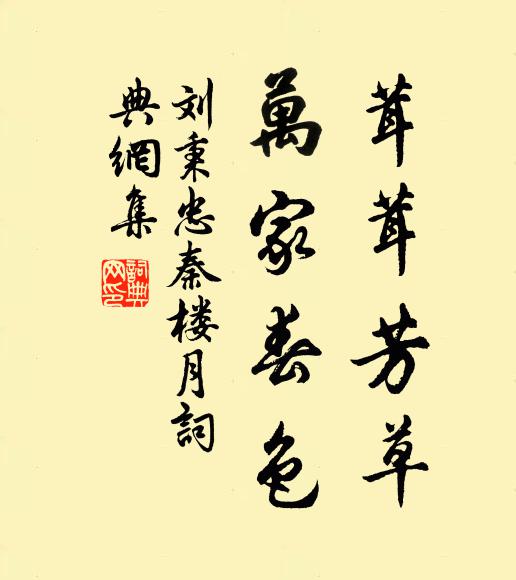 茸茸芳草
萬家春色
刘秉忠秦楼月詞
典網集
詞典
网印